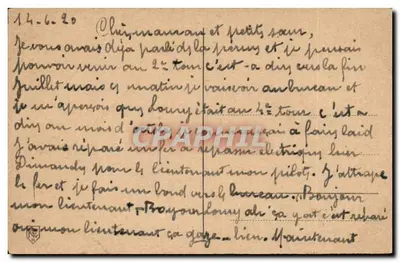 14-6-20
Chère maman et petite sœur,
je vous avais déjà parlé de la perme et je pensais
pouvoir venir au 2e tour c'est-à-dire vers la fin
Juillet mais ce matin je vais voir au bureau et
je m'aperçois que Louvy était au 4e tour c'est à
dire au mois d'
J'avais réparé un fer à repasser électrique hier
Dimanche pour le lieutenant mon pilote. J'attrape
le fer et je fais un bond vers le bureau. "Bonjour
mon lieutenant, Bonjour Louvy ah! ça y est c'est réparé
oui mon lieutenant ça gaze bien. Maintenant
CPARAMA.FR